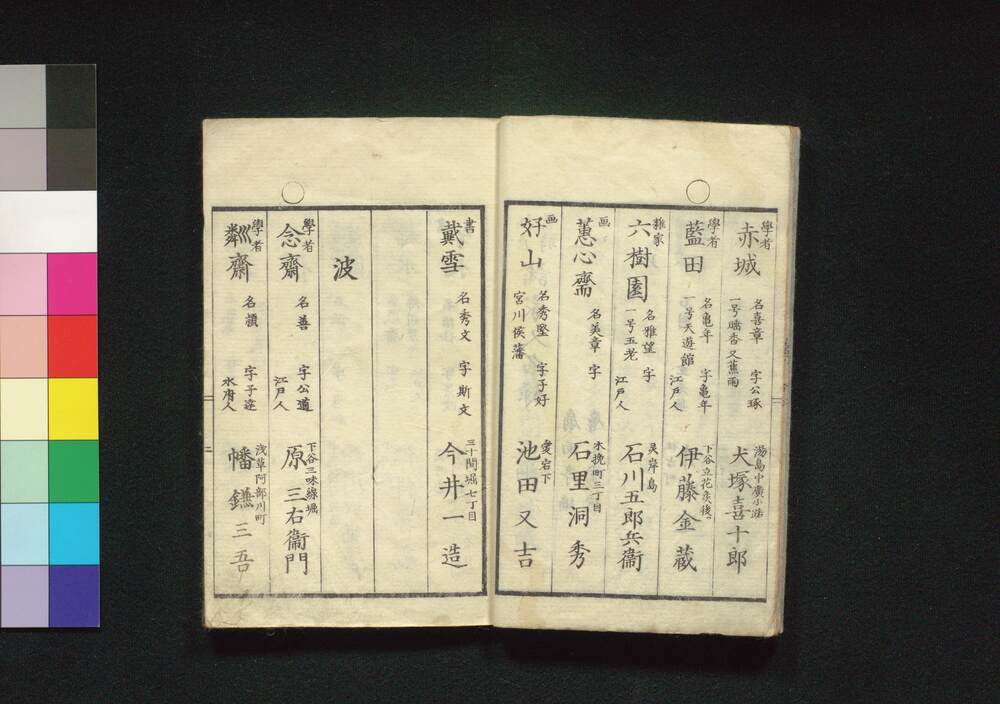 學者
赤城
名喜章 字公琢
一号 香又蕉雨
湯島中廣小路
犬塚喜十郎
學者
藍田
名亀年 字亀年
一号天遊館 江戸人
下谷立花矦後
伊藤金蔵
雜家
六樹園
名雅望 字
一号五老 江戸人
灵岸島
石川五郎兵衞
画
蕙心齋
名美章 字
木挽町三丁目
石里洞秀
画
好山
名秀堅 字子好
宮川侯藩
愛宕下
池田又吉
書
戴雪
名秀文 字斯文
三十間堀七丁目
今井一造
波
學者
念齋
名善 字公道
江戸人
下谷三味線堀
原三右衞門
學者
齋
名 字子達
水府人
浅草阿部川町
幡鎌三吾
二